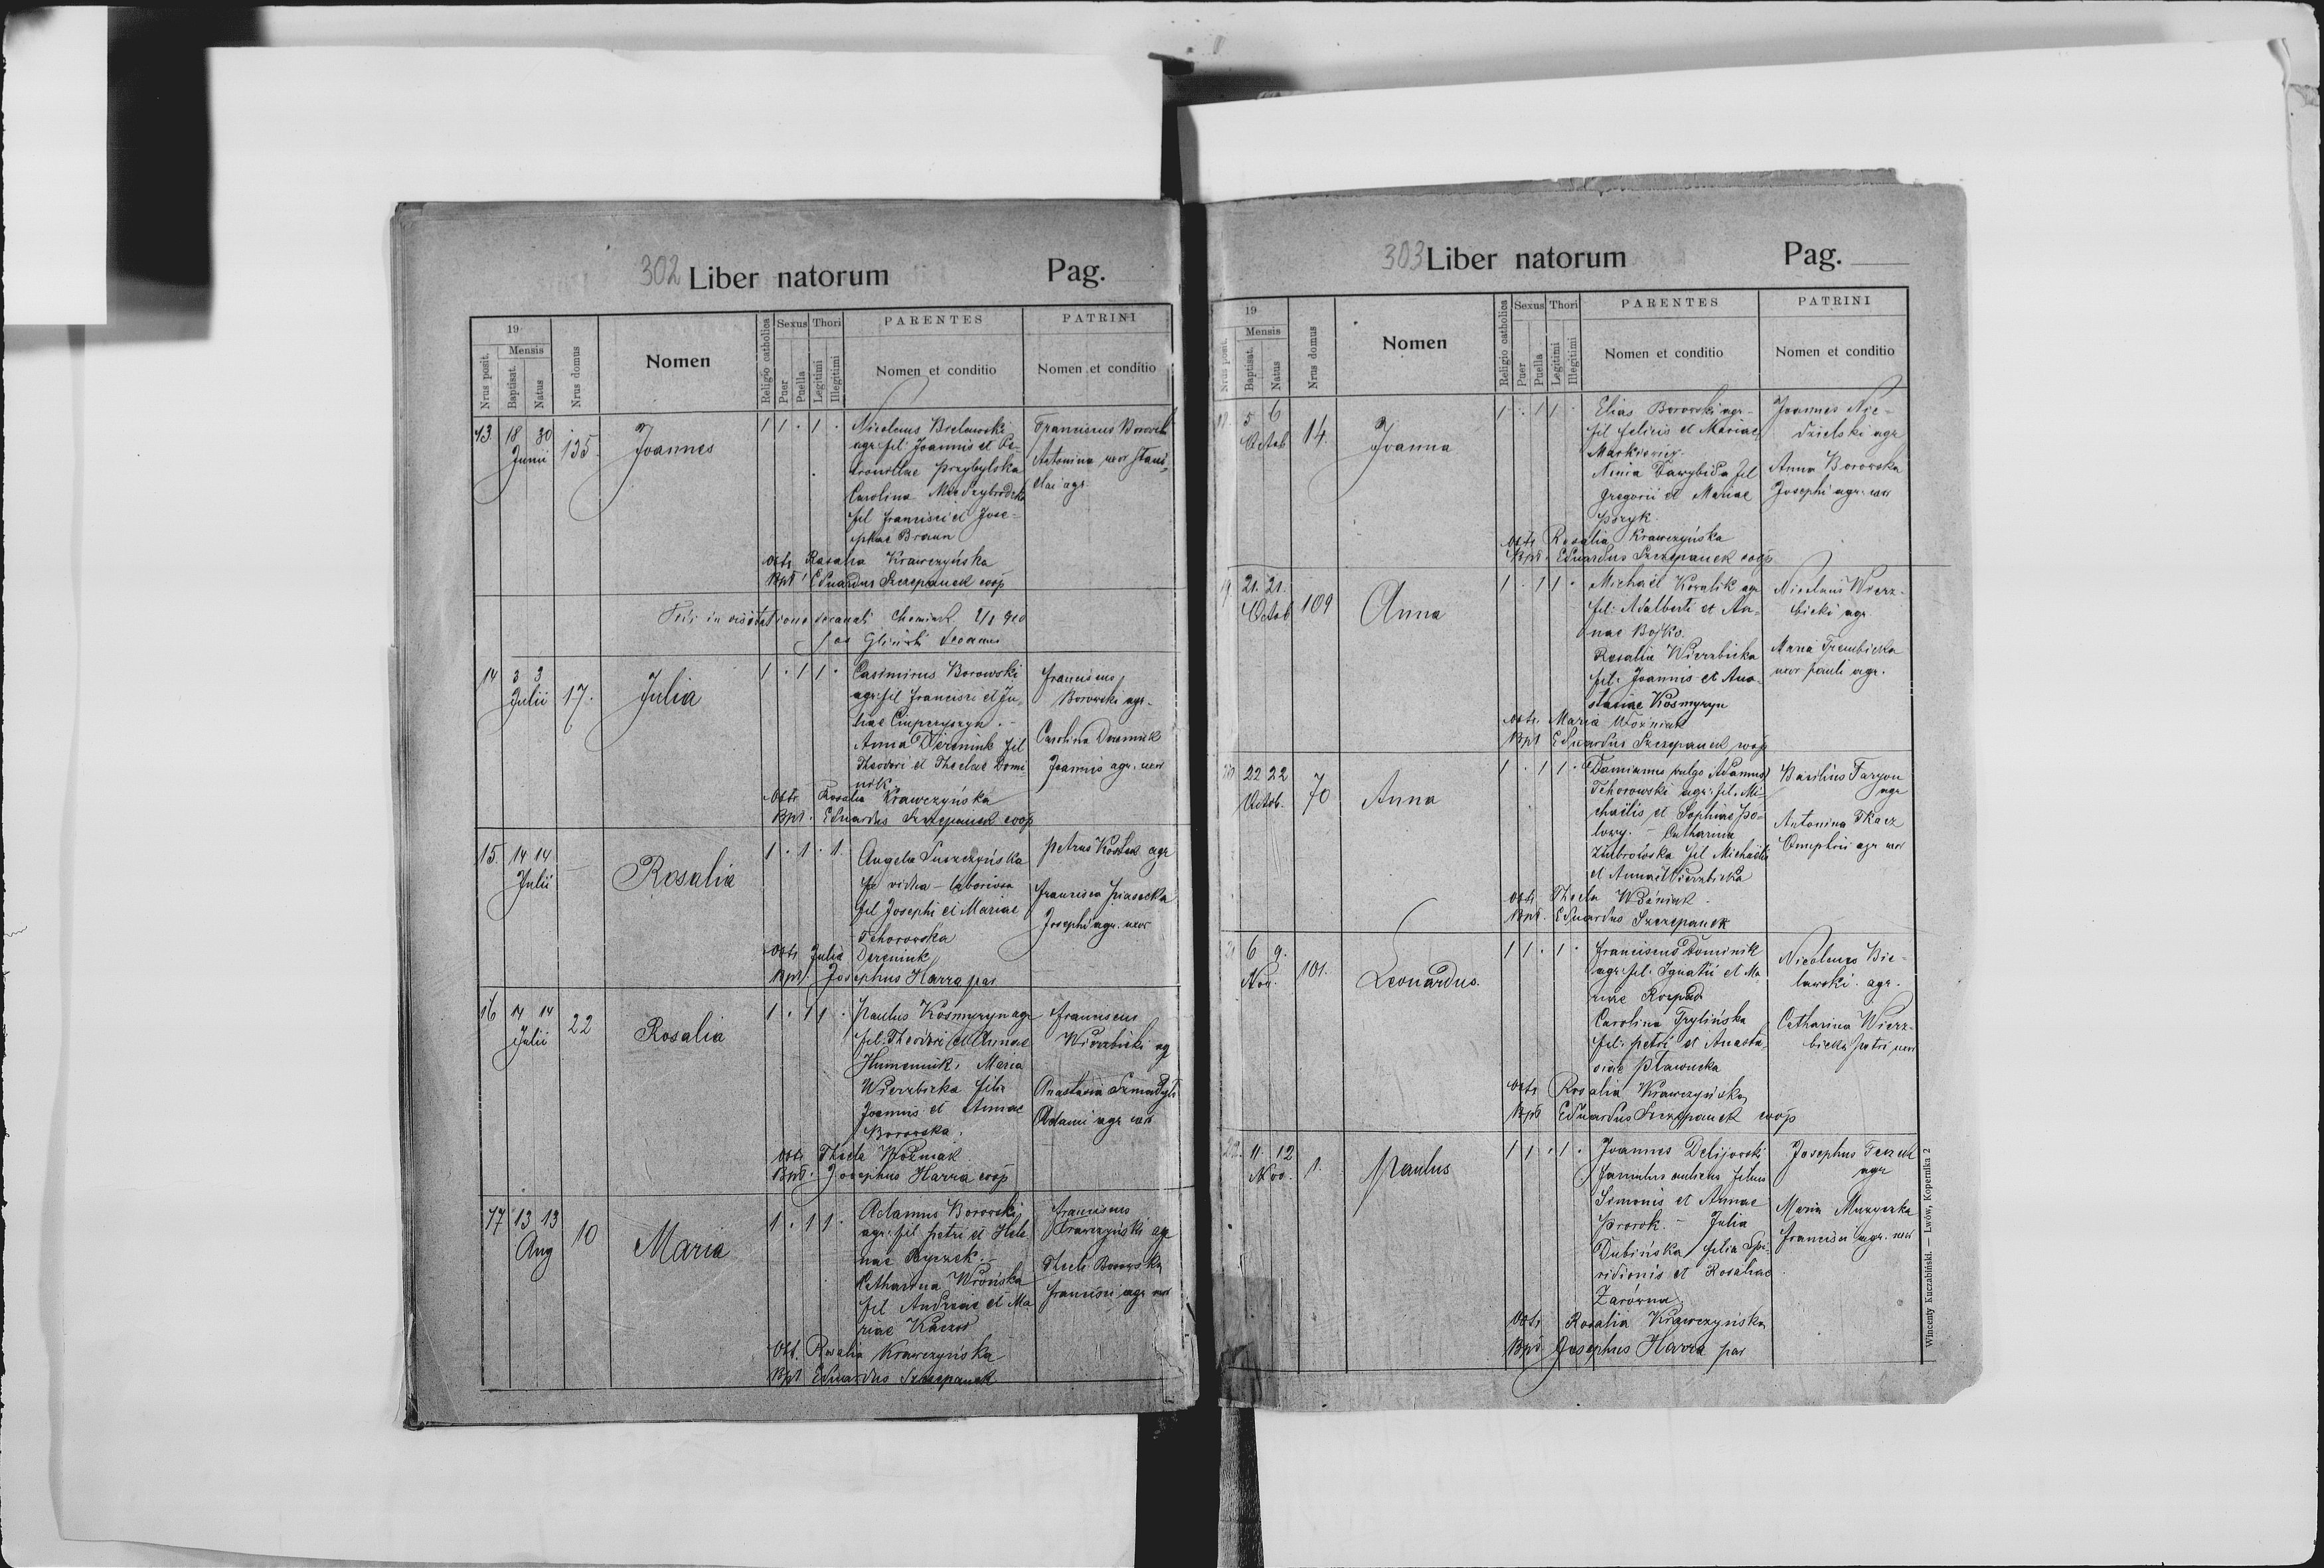 302 Liber natorum Pag.
19
Nrus posit.
Mensis
Baptisat.
Natus
Nrus domus
Nomen
Religio catholica
Sexus
Puer
Puella
Thori
Legitimi
Illegitimi
PARENTES
Nomen et conditio
PATRINI
Nomen et conditio
13. 18 30
Junii
135.
Joannes
1 1 . 1 .
Nicolaus Bielawski
agr. fil. Joannis et Pe-
tronellae Przybylska
Carolina
fil Francisci et Jose-
phae Braun
Franciscus Borowski
Antonina uxor Stanis-
lai agr.
Obst. Rosalia Krawczyńska
Bpt. Eduardus Szczepanek coop
in visitatione decanali
14 3 3
Julii
17.
Julia
1 . 1 1 .
Casimirus Borowski
agr. fil Francisci et Ju-
liae
Anna Dereniuk fil
Theodori et Theclae Domi-
nik
Franciscus
Borowski agr.
Carolina
Joannis agr. uxor
Obst. Rosalia Krawczyńska
Bpt. Eduardus Szczepanek coop
15. 14 14
Julii
Rosalia
1 . 1 . 1.
Angela Suszczyńska
vidua - laboriosa
fil Josephi et Mariae
Tchorowska
Petrus Kostek agr
Francisca Piasecka
Josephi agr. uxor
Obst. Julia Dereniuk
Bpt. Josephus Harra par
16 14 14
Julii
22
Rosalia
1 . 1 1 .
Paulus Kosmyryn agr
fil. Theodori et Annae
Humeniuk. Maria
Wierzbicka filia
Joannis et Annae
Borowska.
Franciscus
Wierzbicki ag
Anastasia
Adami agr uxor
Obst Thecla Woźniak
Bpt. Josephus Harra coop
17 13 13
Aug
10
Maria
1 . 1 1 .
Adamus Borowski
agr. fil Petri et Hele-
nae
Catharina Wrońska
fil Andreae et Ma-
riae
Franciscus
Krawczyński agr
Thecla Borowska
Francisci agr uxor
Obst. Rosalia Krawczyńska
Bpt Eduardus Szczepanek
303 Liber natorum Pag.
19
Nrus posit.
Mensis
Baptisat.
Natus
Nrus domus
Nomen
Religio catholica
Sexus
Puer
Puella
Thori
Legitimi
Illegitimi
PARENTES
Nomen et conditio
PATRINI
Nomen et conditio
18. 5 6
Octob
14.
Joanna
1 . 1 1 .
Elias Borowski agr-
fil Felicis et Mariae
Markiewicz.
fil
Gregorii et Mariae
Joannes Nie-
dzielski agr
Anna Borowska
Josephi agr. uxor
Obst Rosalia Krawczyńska
Bpt. Eduardus Szczepanek coop
19 21. 21.
Octob
109
Anna
1 . 1 1 .
Michaël Kowalik agr
fil. Adalberti et An-
nae Bojko.
Rosalia Wierzbicka
fil. Joannis et Ana-
stasiae Kosmyryn
Nicolaus Wierz-
bicki agr.
Maria Trembicka
uxor Pauli agr.
Obst. Maria Woźniak
Bpt Eduardus Szczepanek coop
20 22 22
Octob.
70
Anna
1 . 1 1 .
Damianus vulgo Adamus
Tchorowski agr. fil. Mi-
chaëlis et Sophiae Po-
lowy. - Catharina
fil Michaëlis
et Annae Wierzbicka
Basilius
agr
Antonina Tkacz
agr uxor
Obst. Thecla Woźniak.
Bpt. Eduardus Szczepanek
21 6 9.
Nov.
101.
Leonardus.
1 1 . 1 .
Franciscus Dominik
agr. fil. Ignatii et Ma-
riae
Carolina Trylińska
fil. Petri et Anasta-
siae
Nicolaus Bie-
lawski. agr.
Catharina Wierz-
bicka Petri uxor
Obst Rosalia Krawczyńska
Bpt Eduardus Szczepanek coop
22. 11. 12
Nov.
1.
Paulus
1 1 . 1 .
Joannes Delijowski
famulus aulicus filius
Simonis et Annae
Prorok. - Julia
Dubińska filia Spi-
ridionis et Rosaliae
Zarówna
Josephus
agr
Maria Muzyczka
Francisci agr. uxor
Obst Rosalia Krawczyńska
Bpt Josephus Harra par
Wincenty Kuczabiński. — Lwów, Kopernika 2